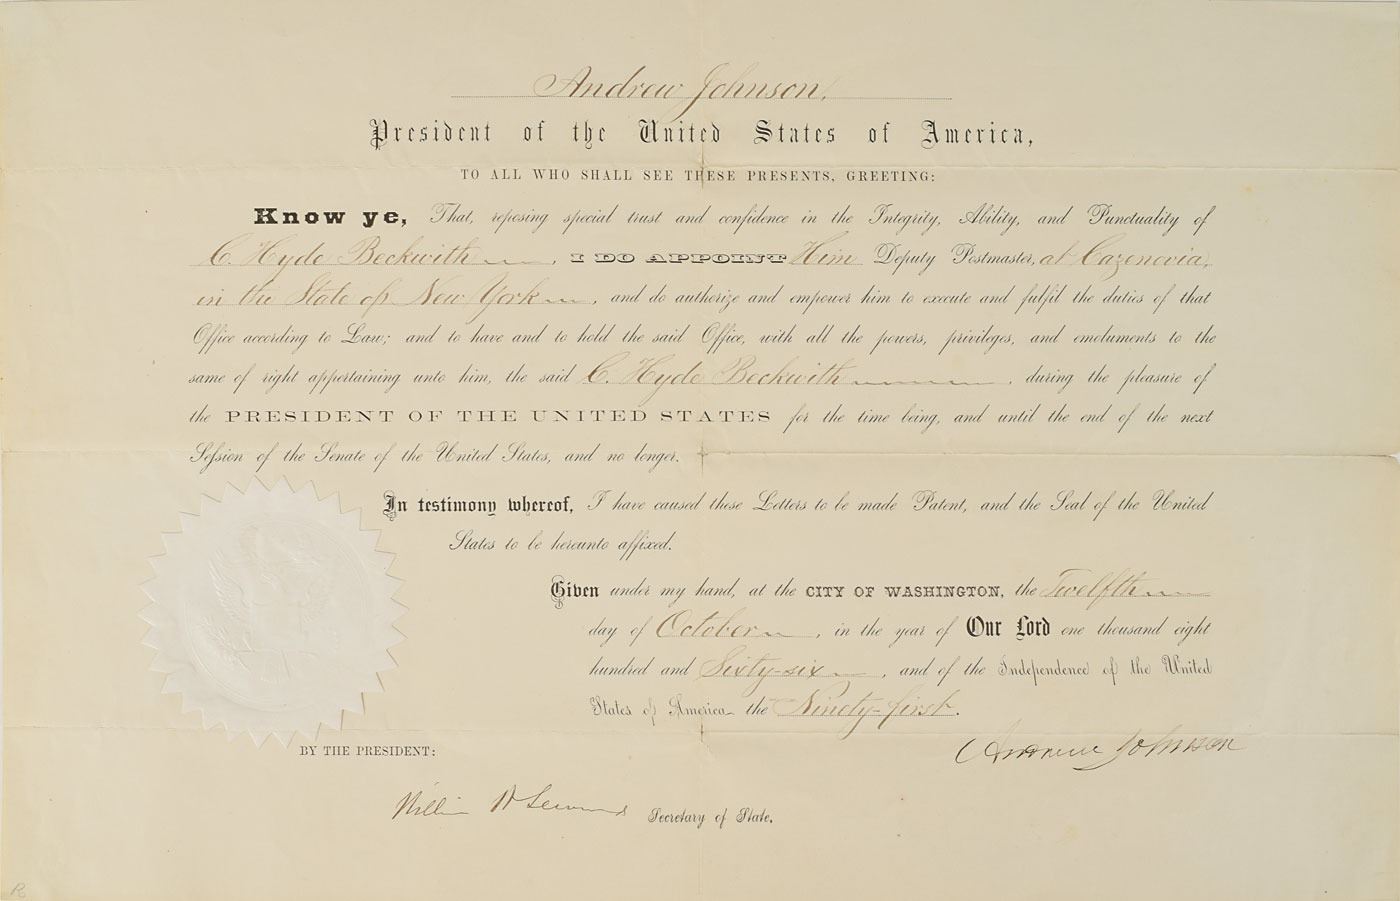 Andrew Johnson,
President of the United States of America,
TO ALL WHO SHALL SEE THESE PRESENTS, GREETING:
Know ye, That, reposing special trust and confidence in the Integrity, Ability, and Punctuality of
C. Hyde Beckwith, I DO APPOINT Him Deputy Postmaster, at Cazenovia,
in the State of New York, and do authorize and empower him to execute and fulfil the duties of that
Office according to Law; and to have and to hold the said Office, with all the powers, privileges, and emoluments to the
same of right appertaining unto him, the said C. Hyde Beckwith, during the pleasure of
the PRESIDENT OF THE UNITED STATES for the time being, and until the end of the next
Session of the Senate of the United States, and no longer.
In testimony whereof, I have caused these Letters to be made Patent, and the Seal of the United
States to be hereunto affixed.
Given under my hand, at the CITY OF WASHINGTON, the Twelfth
day of October, in the year of Our Lord one thousand eight
hundred and Sixty-six, and of the Independence of the United
States of America the Ninety-first.
Andrew Johnson
BY THE PRESIDENT:
William H Seward Secretary of State.